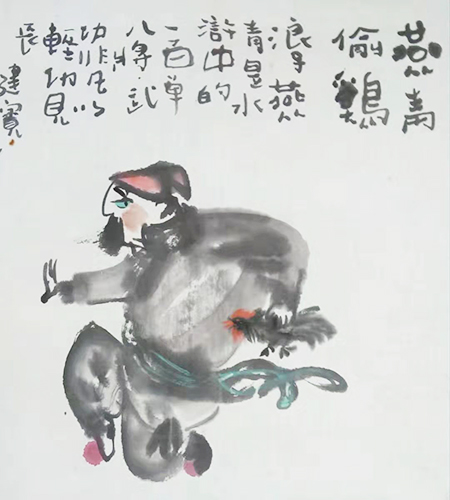 燕青
偷鷄
浪子燕
青是水
滸中的
一百單
八將武
功非凡以
輕功見
長
建寶